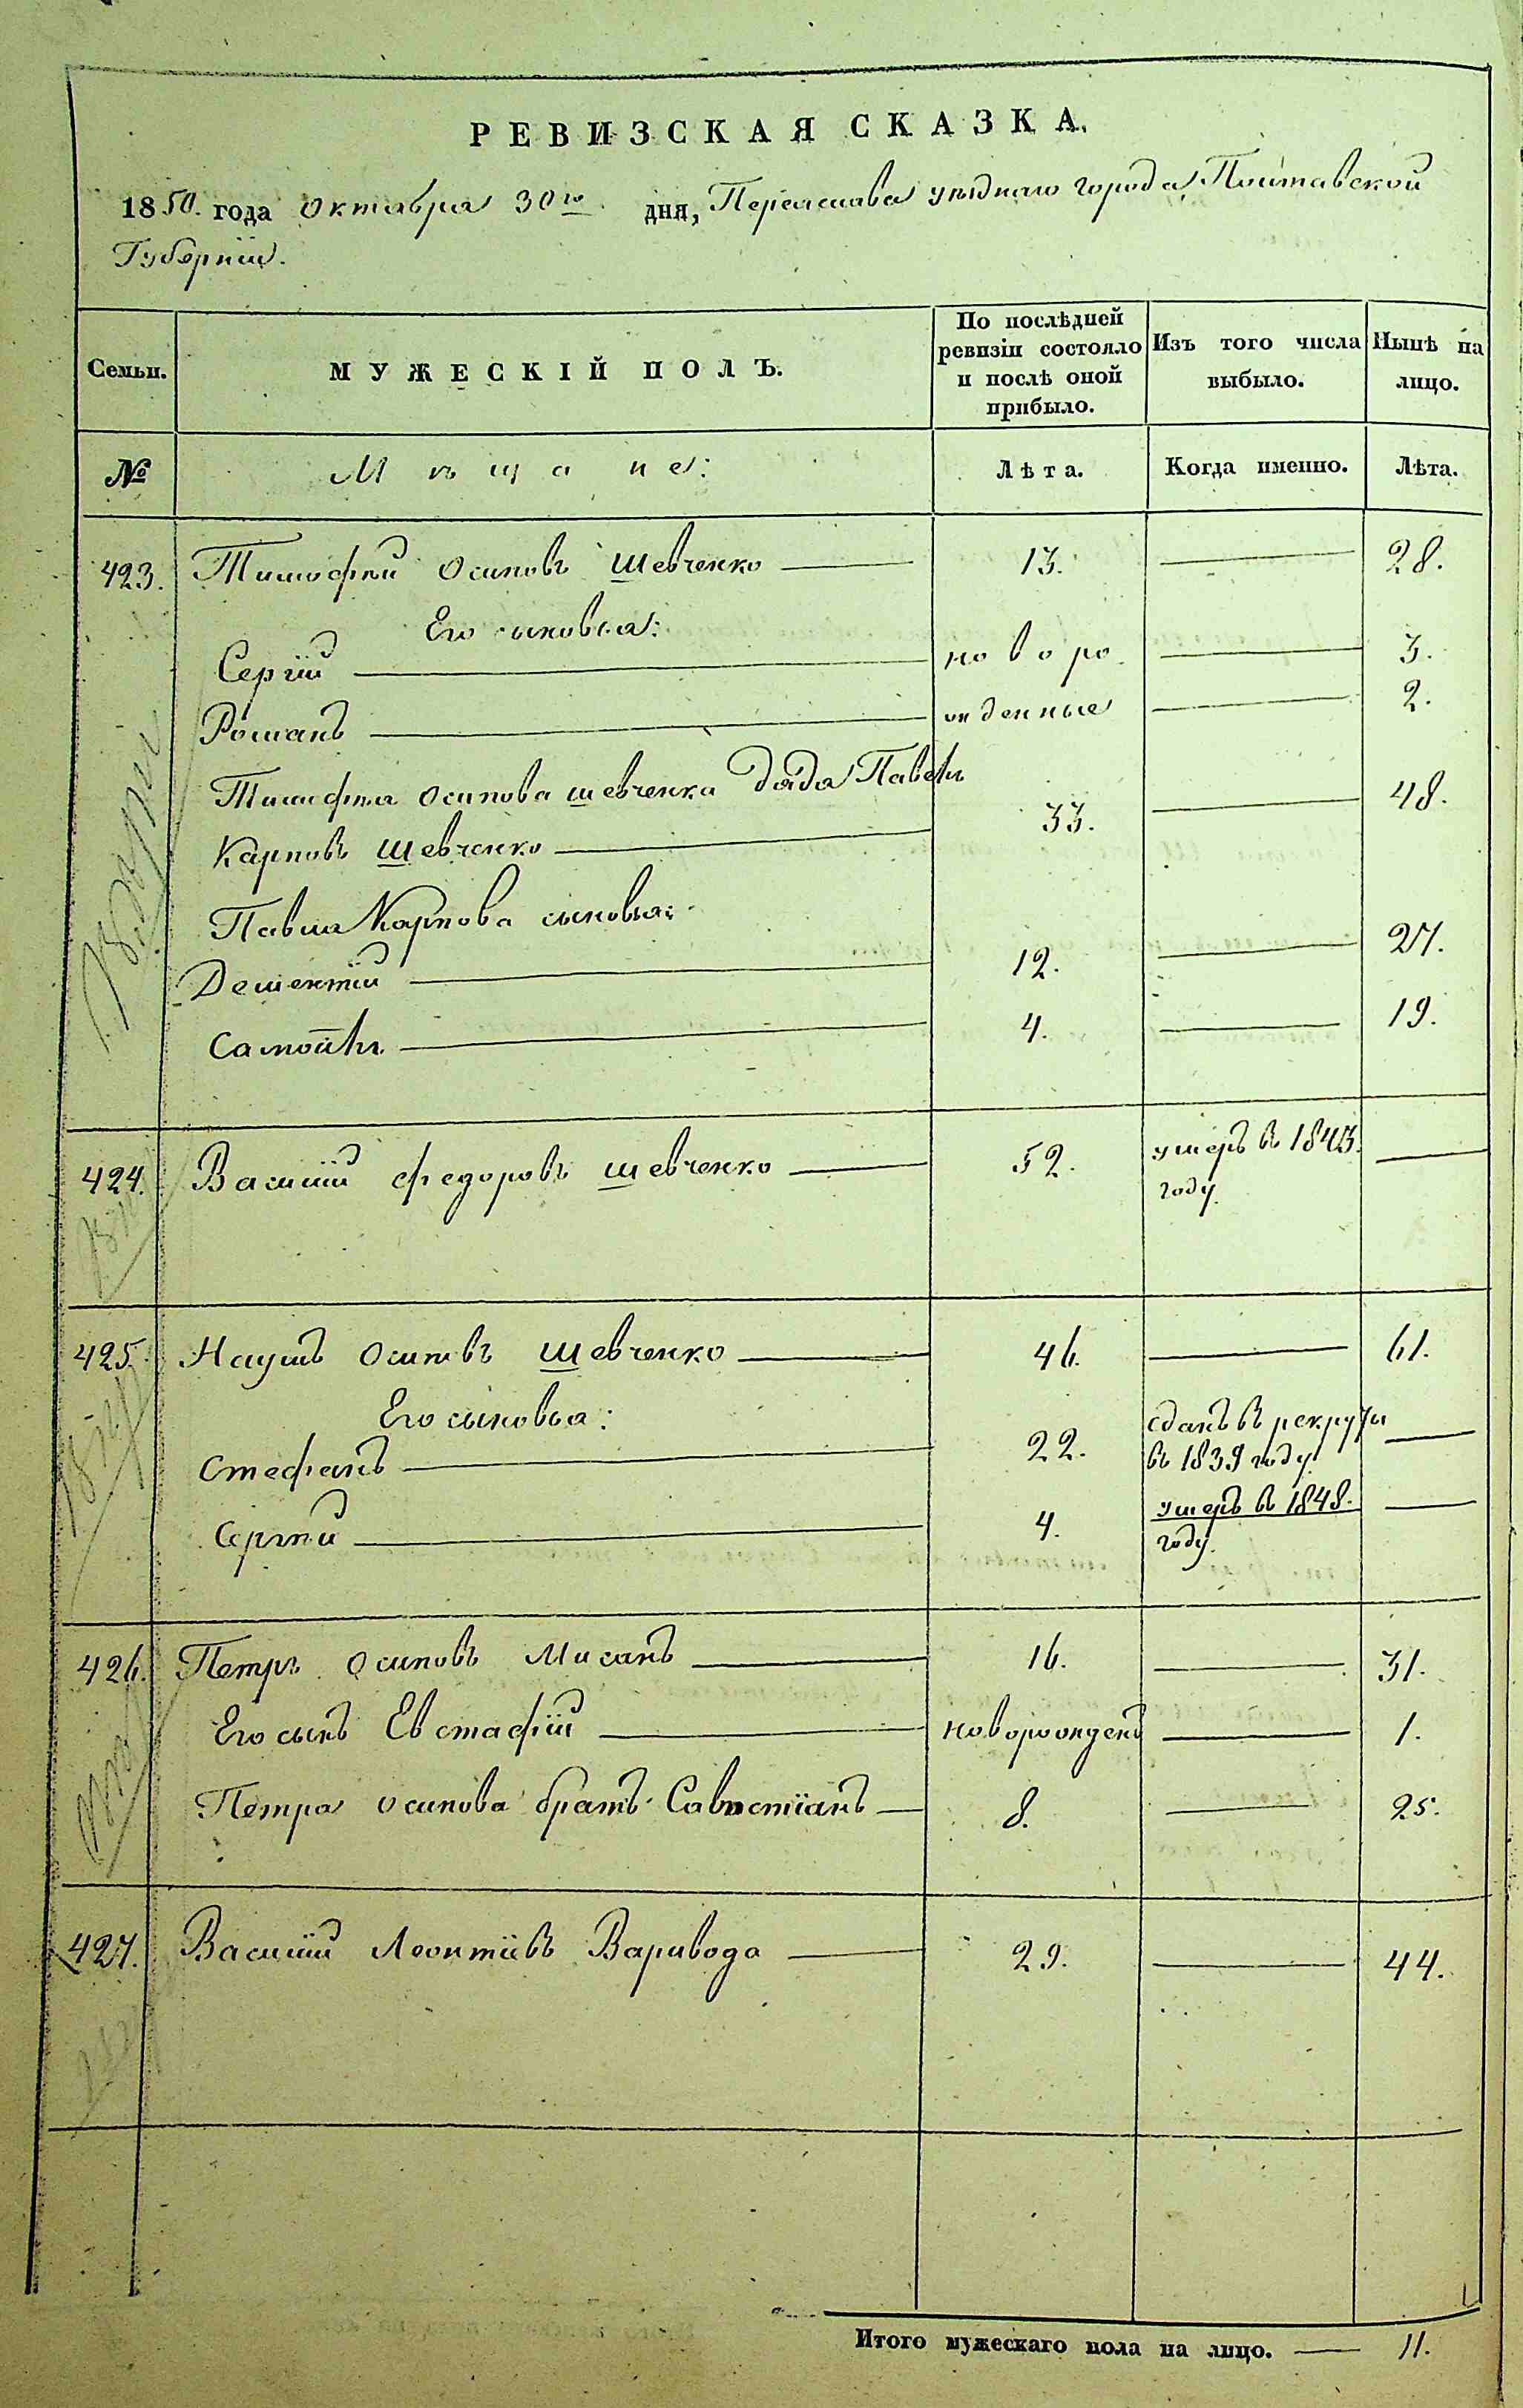 РЕВИЗСКАЯ СКАЗКА.
1850. года Октября 30го дня, Переяслава уѣзднаго города, Полтавской
Губерніи.
Семьи. МУЖЕСКІЙ ПОЛЪ. По послѣдней ревизіи состояло и послѣ оной прибыло. Изъ того числа выбыло. Нынѣ на лицо.
№ Мѣщане: Лѣта. Когда именно. Лѣта.
423. Тимофѣй Осиповъ Шевченко 13. 28.
Его сыновья:
Сергій новоро 3.
Романъ жденные 2.
Тимофея Осипова Шевченка дядя Павелъ
Карповъ Шевченко 33. 48.
Павла Карпова сыновья:
Дементій 12. 27.
Самойлъ 4. 19.
424. Василій Федоровъ Шевченко 52. умеръ в 1843.
году.
425. Наумъ Осиповъ Шевченко 46. 61.
Его сыновья:
Стефанъ 22. сданъ в рекруты
въ 1839 году.
Сергѣй 4. умеръ в 1848.
году.
426. Петръ Осиповъ Мисанъ 16. 31.
Его сынъ Евстафій новорожденъ 1.
Петра Осипова братъ Савастіанъ 8. 25.
427. Василій ЛеонтіевъВаривода 29. 44.
Итого мужескаго пола на лицо. 11.